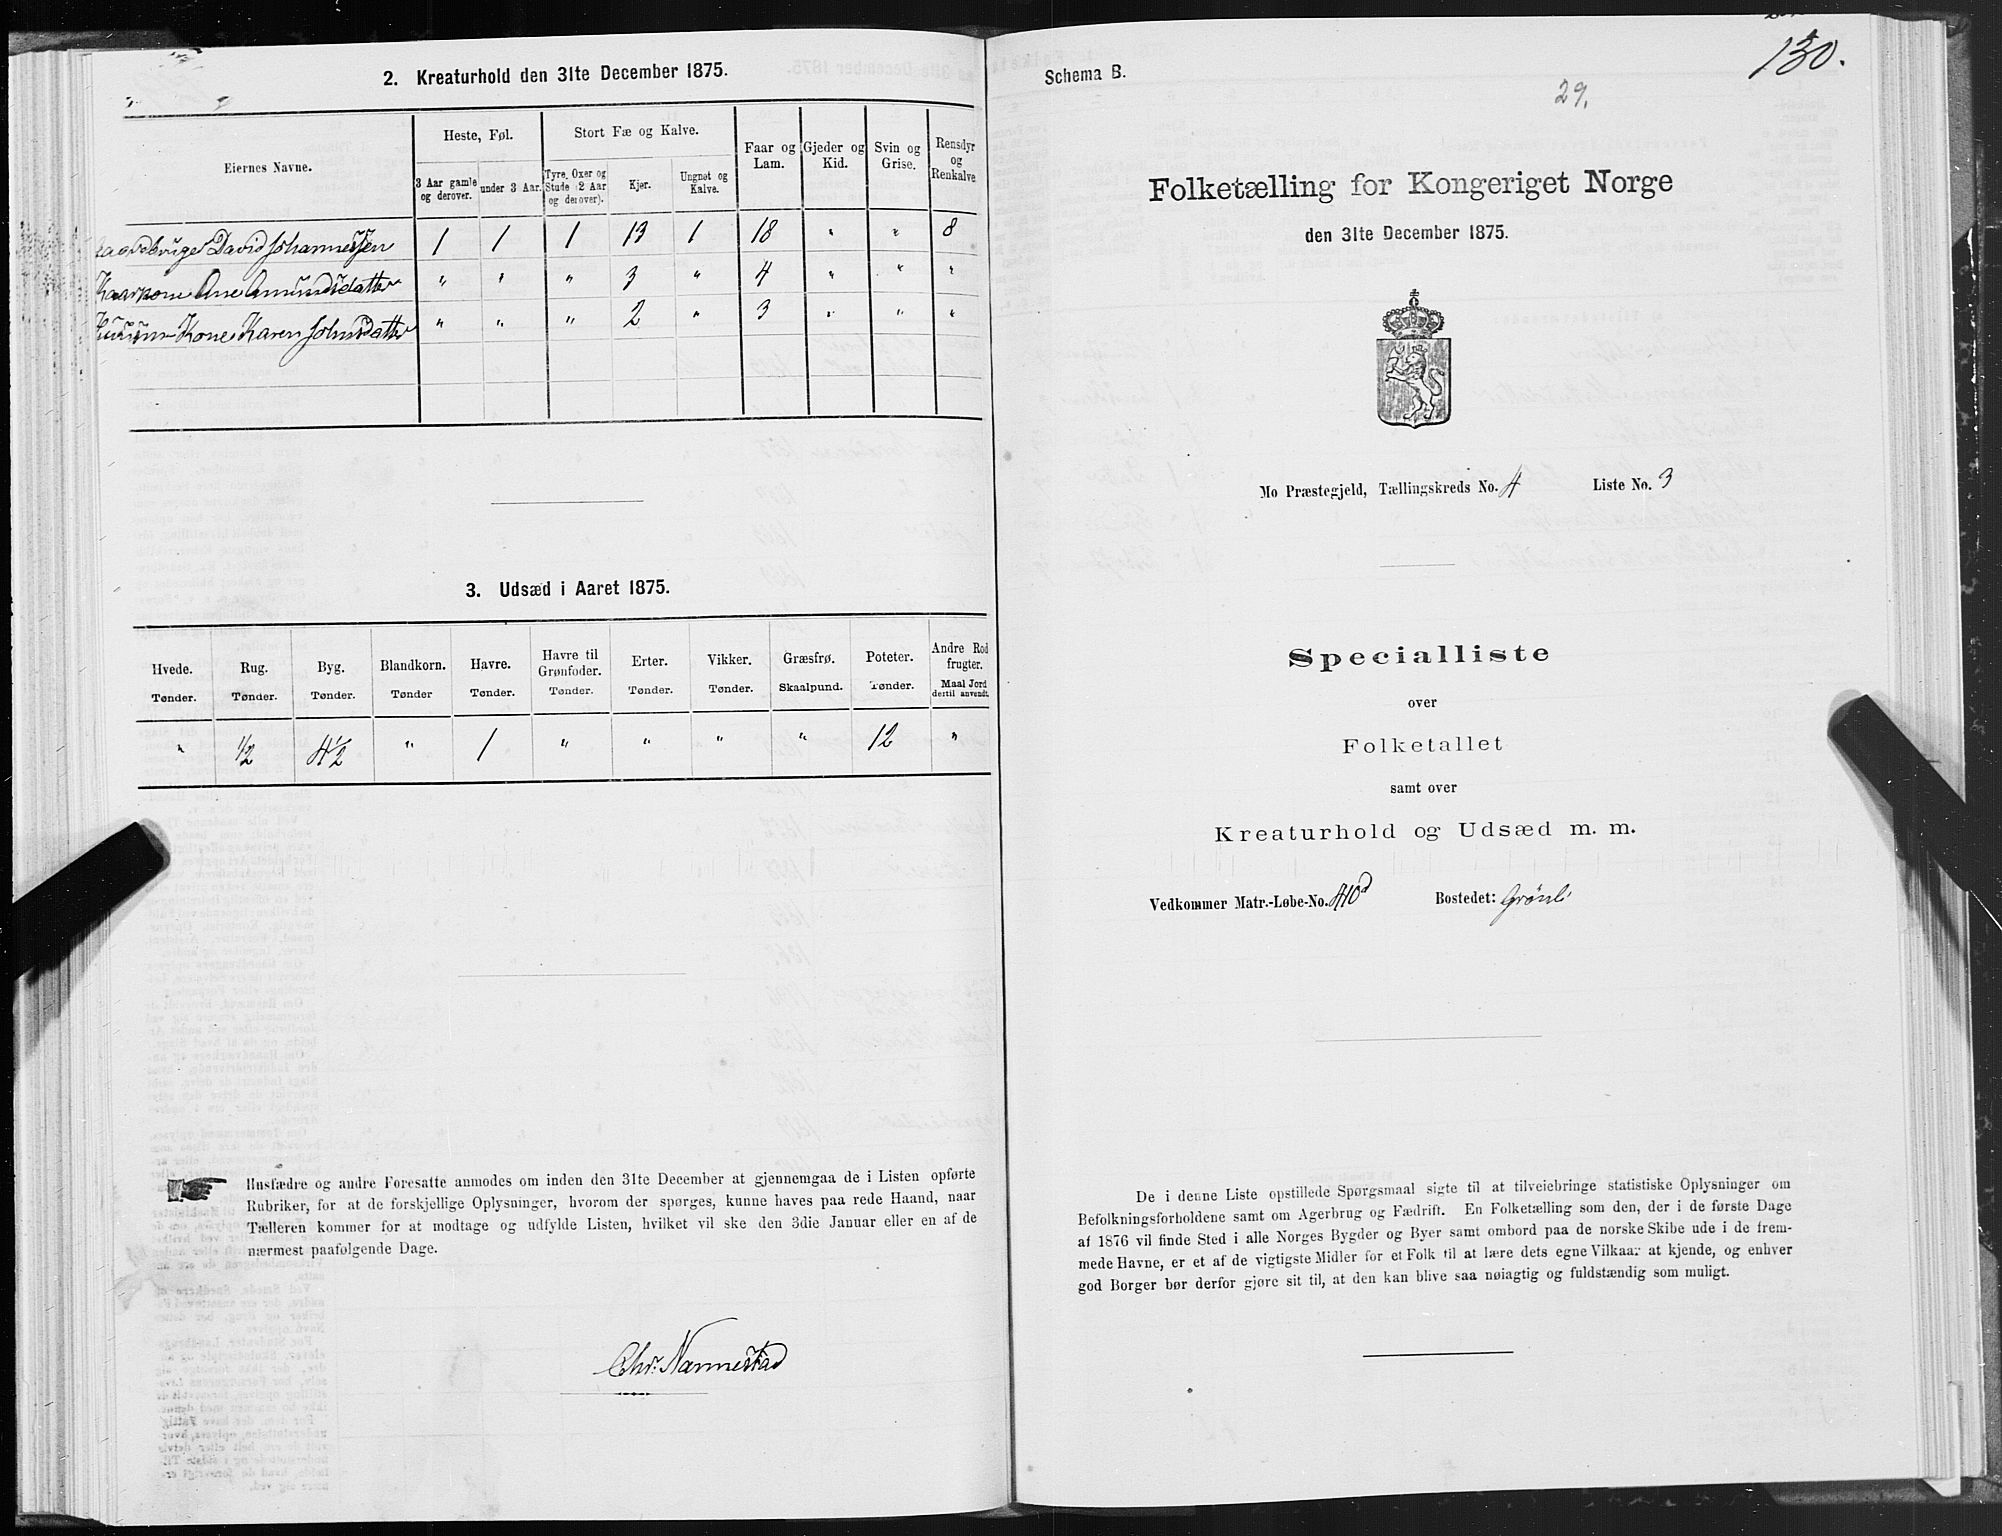 2. Kreaturhold den 31te December 1875.
Eiernes Navne.
Heste, Føl.
Stort Fæ og Kalve.
Faar og Lam.
Gjeder og Kid.
Svin og Grise.
Rensdyr og Renkalve
3 Aar gamle og derover.
under 3 Aar.
Tyre, Oxer og Stude (2 Aar og derover).
Kjør.
Ungnøt og Kalve.
Gaardbruger David Johannessen 1 1 1 13 1 18 " " 8
Kaarkone Ane Amundsdatter " " " 3 " 4 " " "
Kone Karen Johnsdatter " " " 2 " 3 " " "
3. Udsæd i Aaret 1875.
Hvede. Rug. Byg. Blandkorn. Havre. Havre til Grønfoder. Erter. Vikker. Græsfrø. Poteter. Andre Rodfrugter.
Tønder. Tønder. Tønder. Tønder Tønder. Tønder. Tønder. Tønder. Skaalpund. Tønder. Maal Jord dertil anvendt.
" 1/2 4 1/2 " 1 " " " " 12 "
Husfædre og andre Foresatte anmodes om inden den 31te December at gjennemgaa de i Listen opførte
Rubriker, for at de forskjellige Oplysninger, hvorom der spørges, kunne haves paa rede Haand, naar
Tælleren kommer for at modtage og udfylde Listen, hvilket vil ske den 3die Januar eller en af de
nærmest paafølgende Dage.
Chr. Nannestad
130.
Schema B.
29.
Folketælling for Kongeriget Norge
den 31te December 1875.
Mo Præstegjeld, Tællingskreds No. 4 Liste No. 3
Specialliste
over
Folketallet
samt over
Kreaturhold og Udsæd m. m.
Vedkommer Matr.-Løbe-No. 410d Bostedet: Grönli
De i denne Liste opstillede Spørgsmaal sigte til at tilveiebringe statistiske Oplysninger om
Befolkningsforholdene samt om Agerbrug og Fædrift. En Folketælling som den, der i de første Dage
af 1876 vil finde Sted i alle Norges Bygder og Byer samt ombord paa de norske Skibe ude i de frem-
mede Havne, er et af de vigtigste Midler for et Folk til at lære dets egne Vilkaar at kjende, og enhver
god Borger bør derfor gjøre sit til, at den kan blive saa nøiagtig og fuldstændig som muligt.